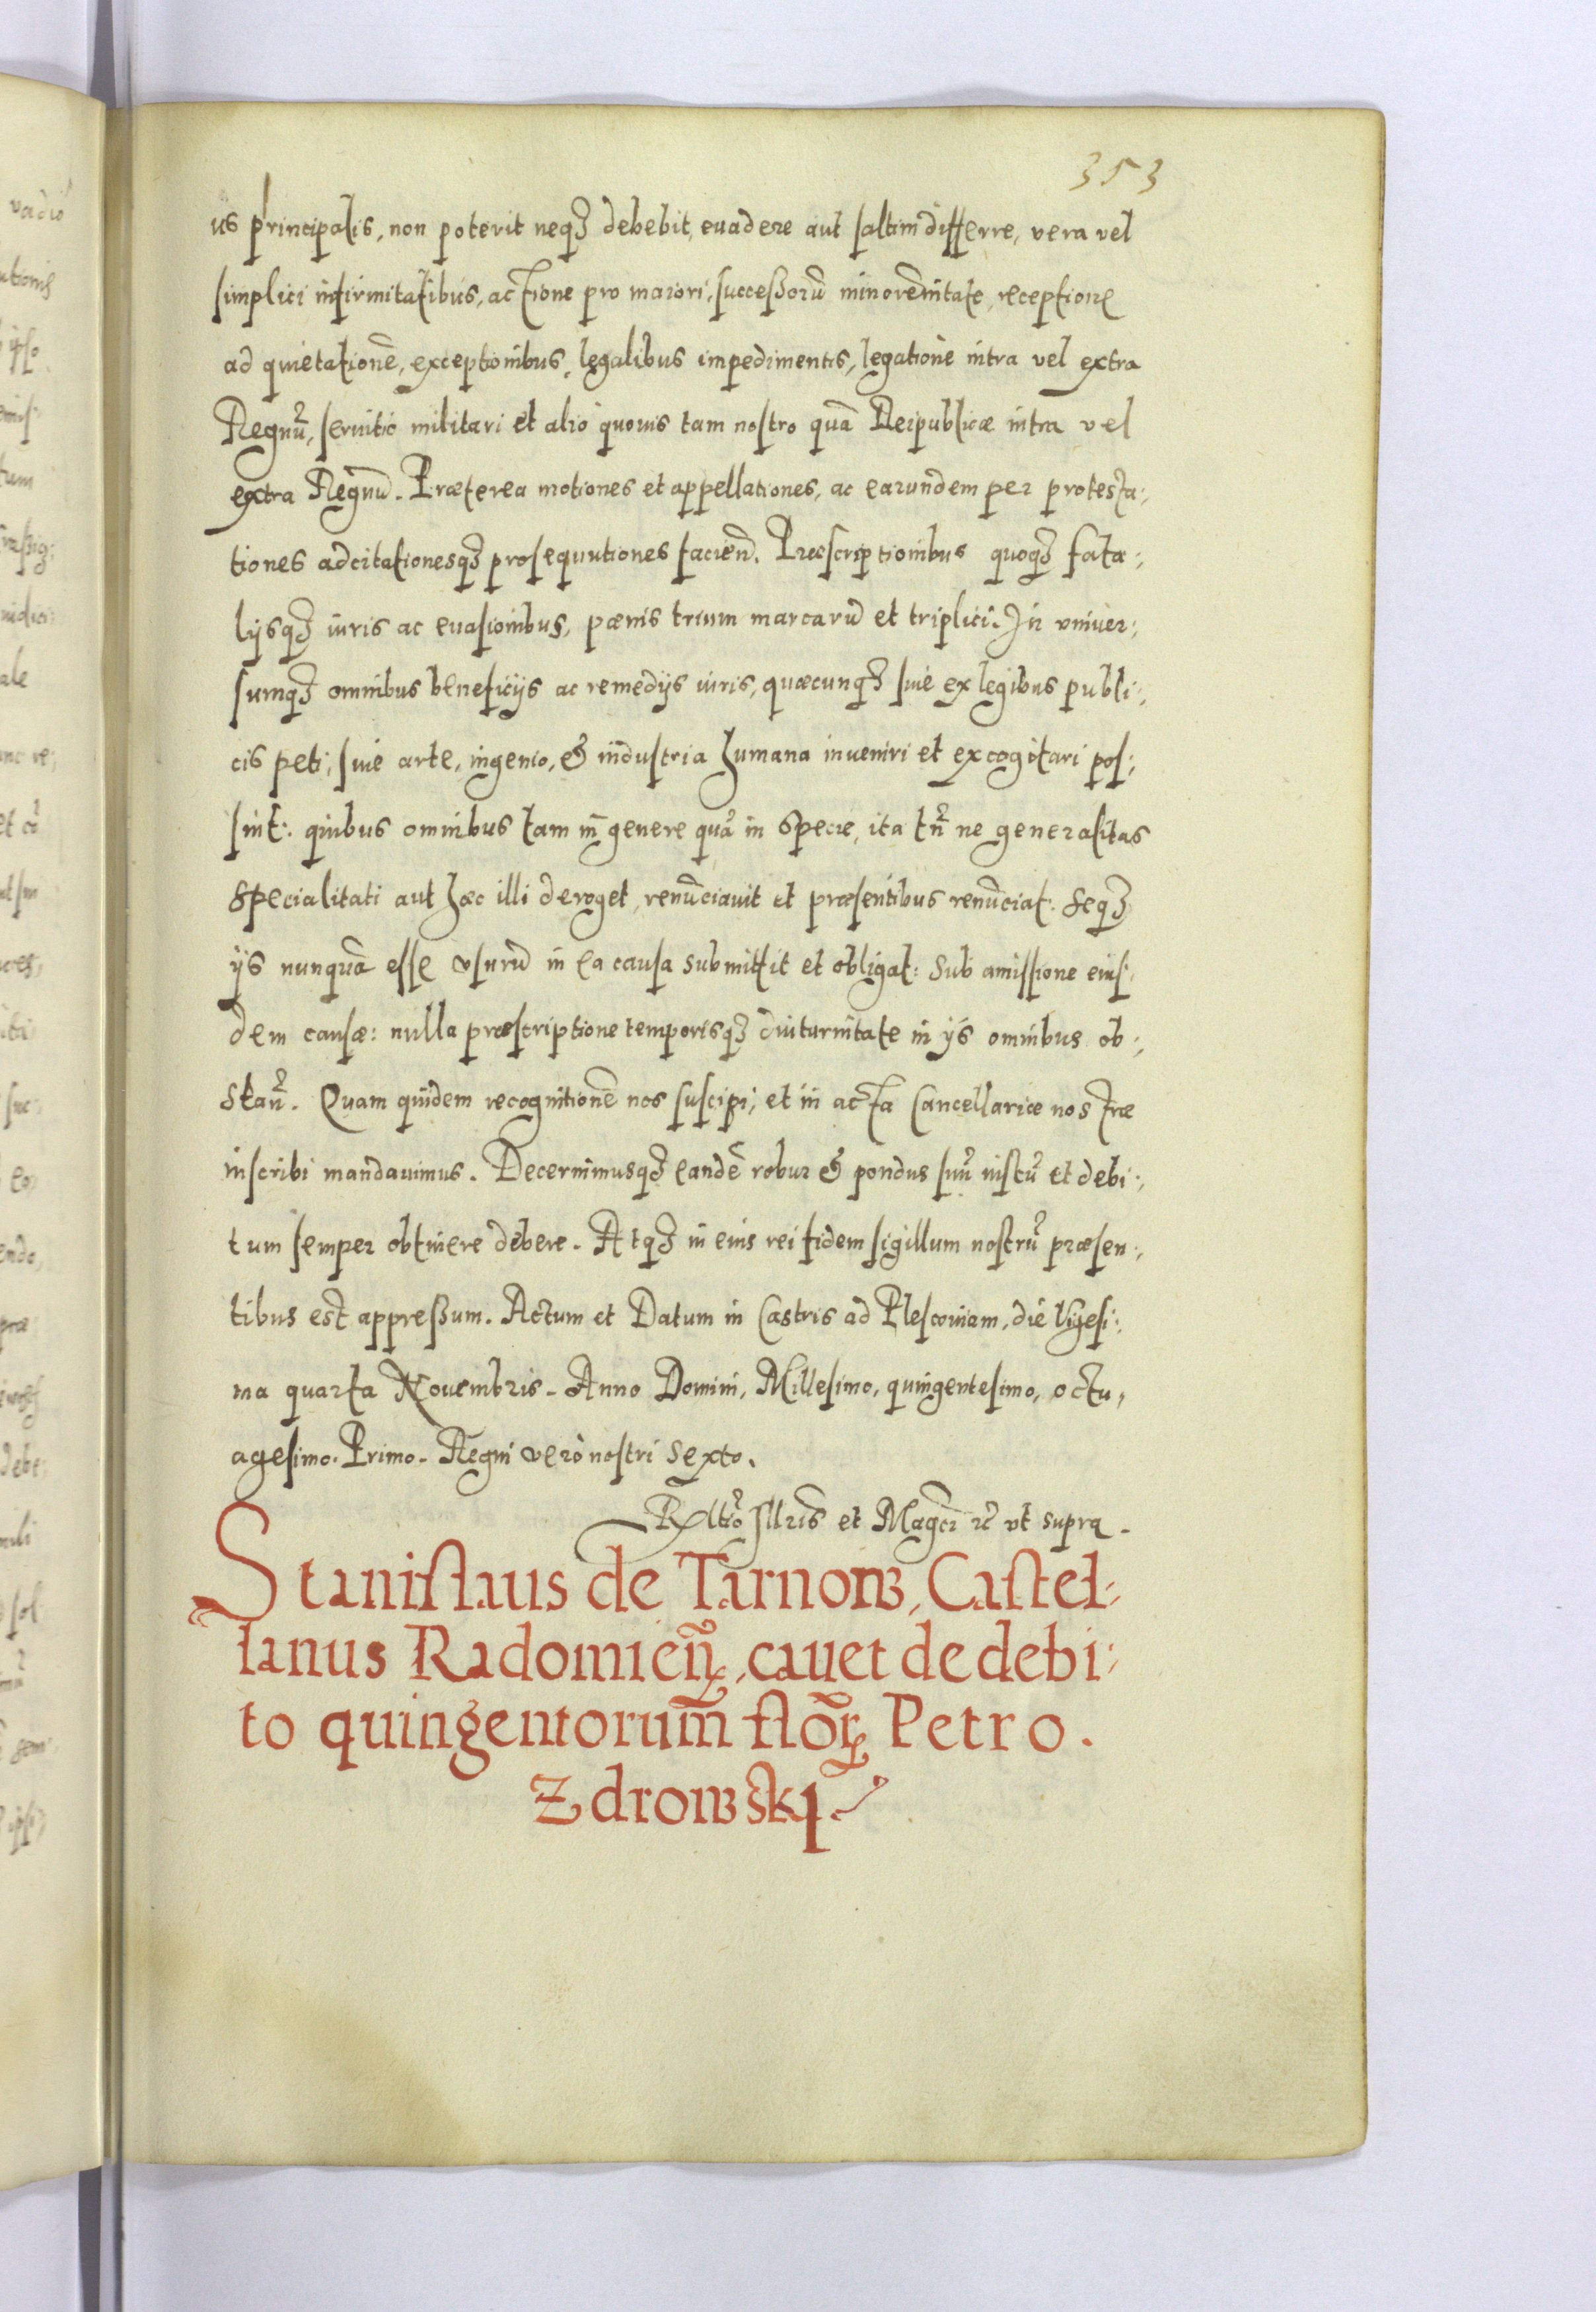 353
us principalis, non poterit neqȝ debebit, euadere aut saltim differre, vera vel
simplici infirmitatibus, actione pro maiori, successorū minorēnitate, receptione
ad quietationē, exceptionibus, legalibus impedimentis, legatione intra vel extra
Regnū, seruitio militari et alio quouis tam nostro quā Reipublicæ intra vel
extra Regnū. Præterea motiones et appellationes, ac earundem per protesta:
tiones adcitationesqȝ prosequutiones faciend. Præscriptionibus quoqȝ fata:
lijsqȝ iuris ac euasionibus, pænis trium marcarū et triplici. In vniuer:
sumqȝ omnibus beneficijs ac remedijs iuris, quæcunqȝ siue ex legibus publi:
cis peti, siue arte, ingenio, & industria humana inueniri et excogitari pos:
sint: quibus omnibus tam in genere quā in specie, ita tn̄ ne generalitas
specialitati aut hæc illi deroget, renunciauit et præsentibus renunciat. Seqȝ
ijs nunquā esse vsurū in ea causa submittit et obligat: Sub amissione eius:
dem causæ: nulla præscriptione temporisqȝ diuturnitate in ijs omnibus ob:
stan̄. Quam quidem recognitionē nos suscipi, et in acta Cancellariæ nostræ
inscribi mandauimus. Decernimusqȝ eandē robur & pondus suū iustū et debi:
tum semper obtinere debere. Atqȝ in eius rei fidem sigillum nostrū præsen:
tibus est appressum. Actum et Datum in Castris ad Plescouiam, die Vigesi:
ma quarta Nouembris. Anno Domini, Millesimo, quingentesimo, octu,
agesimo. Primo. Regni verò nostri Sexto.
et ut supra.
Stanislaus de Tarnow, Castel:
lanus Radomień, cauet de debi:
to quingentorum flor Petro.
Zdrowski.